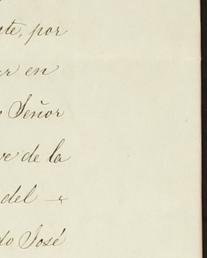 te, por
r en
Señor
ve de la
del —
do José